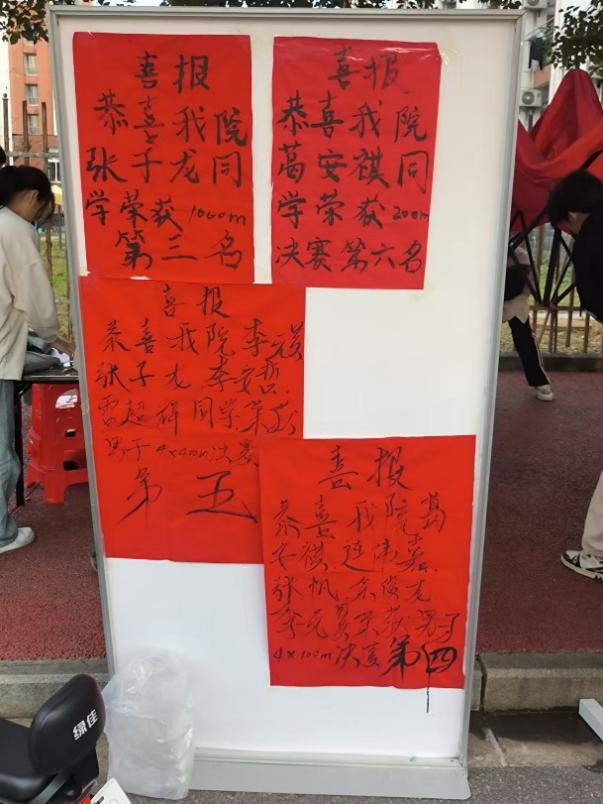 喜报
恭喜我院
张子龙同
学荣获1000m
第三名
喜报
恭喜我院
葛安祺同
学荣获200m
决赛第六名
喜报
恭喜我院李元
张子龙李安哲
雷超祥同学荣获
男子4×400m决赛
第五
喜报
恭喜我院葛
安祺连伟嘉
张帆余俊龙
李元昊荣获男子
4×100m决赛第四
绿佳